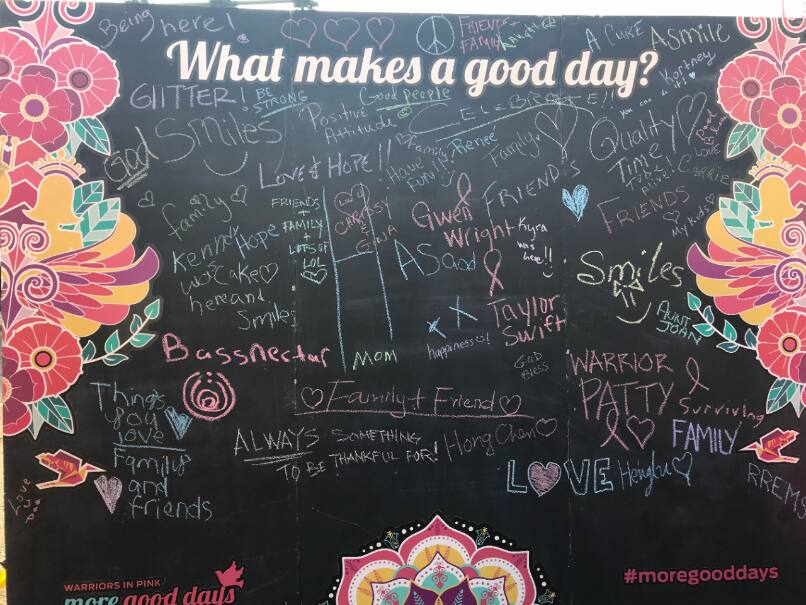 Being here!
FRIENDS +
FAMILY
A CURE
A Smile
What makes a good day?
Kortney
you can do it!
GLITTER!
BE
STRONG
Good people
CELEBRATE!!
Positive
Attitude
God
Smiles
Family
Renee
Have
Fun!!
Family
Quality
Time
LOVE
Carrie
LOVE & HOPE!!
FRIENDS
FRIENDS
My kids
family
FRIENDS
+
FAMILY
LOTS OF
LOL
CHRISSY
GINA
Gwen
Wright
Kyra
was
here!!
Kennedy
was
here and
Hope
Cake
Smiles
Smiles
AUNT
JOAN
Taylor
Swift
happiness
GOD
BLESS
Bassnectar
MOM
WARRIOR
PATTY
Surviving
Family + Friend
Things
you
love
Family
and
friends
ALWAYS SOMETHING
TO BE THANKFUL FOR!
Hong Chen
FAMILY
LOVE
Henglu
RREMS
Love
Dee
WARRIORS IN PINK
more good days
#moregooddays